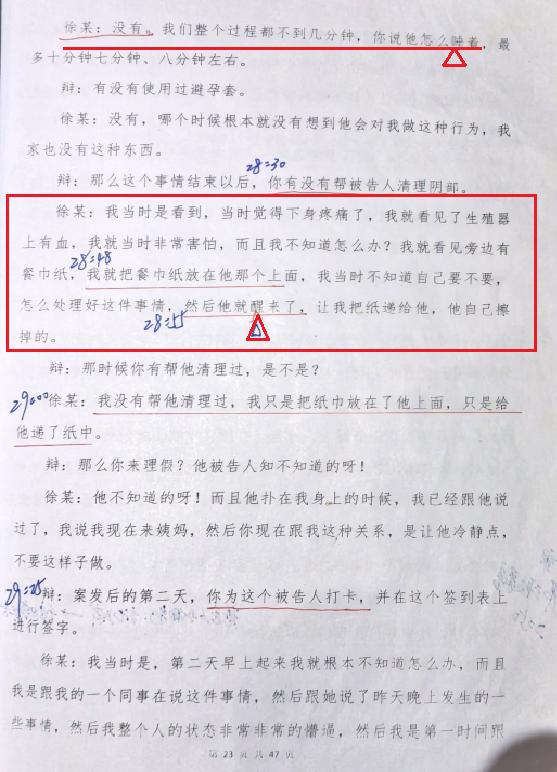 徐某：没有。我们整个过程都不到几分钟，你说他怎么睡着，最
多十分钟七分钟、八分钟左右。
辩：有没有使用过避孕套。
徐某：没有，哪个时候根本就没有想到他会对我做这种行为，我
家也没有这种东西。
28=30
辩：那么这个事情结束以后，你有没有帮被告人清理阴部。
徐某：我当时是看到，当时觉得下身疼痛了，我就看见了生殖器
上有血，我就当时非常害怕，而且我不知道怎么办？我就看见旁边有
28=48
餐巾纸，我就把餐巾纸放在他那个上面，我当时不知道自己要不要，
怎么处理好这件事情，然后他就醒来了。让我把纸递给他，他自己擦
28=55
掉的。
辩：那时候你有帮他清理过，是不是？
29=00
徐某：我没有帮他清理过，我只是把纸巾放在了他上面，只是给
他递了纸巾。
辩：那么你来理假？他被告人知不知道的呀！
徐某：他不知道的呀！而且他扑在我身上的时候，我已经跟他说
过了，我说我现在来姨妈，然后你现在跟我这种关系，是让他冷静点，
不要这样子做。
29=25
辩：案发后的第二天，你为这个被告人打卡，并在这个签到表上
进行签字。
徐某：我当时是，第二天早上起来我就根本不知道怎么办，而且
我是跟我的一个同事在说这件事情，然后跟她说了昨天晚上发生的一
些事情，然后我整个人的状态非常非常的懵逼，然后我是第一时间跟
第 23 页 共 47 页